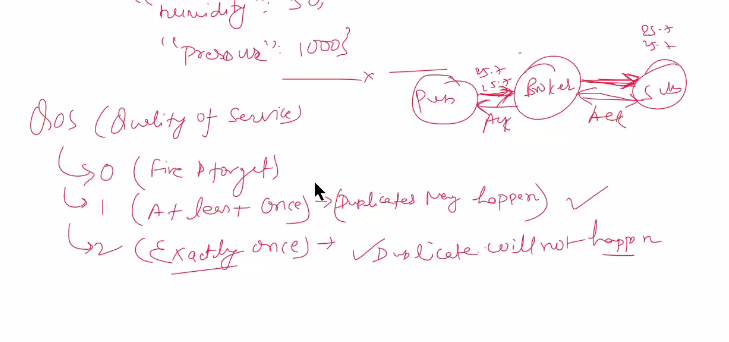 "humidity": 50,
"pressure": 1000}
x
25.7
25.7
25.7
25.7
Pub
Broker
Sub
Ack
Ack
QOS (Quality of service)
0 (Fire & forget)
1 (At least once) → (Duplicates may happen) ✓
2 (Exactly once) → ✓ Duplicate will not happen